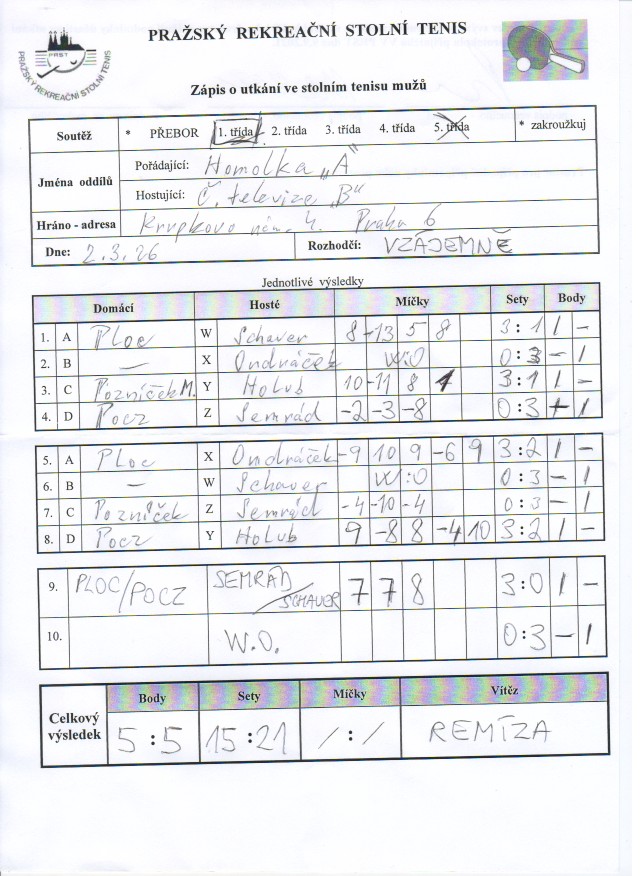 PRAŽSKÝ REKREAČNÍ STOLNÍ TENIS
PRST
PRAŽSKÝ REKREAČNÍ STOLNÍ TENIS
Zápis o utkání ve stolním tenisu mužů
Soutěž * PŘEBOR 1. třída 2. třída 3. třída 4. třída 5. třída * zakroužkuj
Jména oddílů
Pořádající: Homolka „A"
Hostující: Č. televize „B"
Hráno - adresa Krupkovo nám. 4. Praha 6
Dne: 2.3.26 Rozhodčí: VZÁJEMNĚ
Jednotlivé výsledky
Domácí Hosté Míčky Sety Body
1. A Ploc W Schaver 8 -13 5 8 3:1 1 -
2. B — X Ondráček W:O 0:3 - 1
3. C Pozníček M. Y Holub 10 -11 8 3:1 1 -
4. D Pocz Z Semrád -2 -3 -8 0:3 - 1
5. A Ploc X Ondráček -9 10 9 -6 9 3:2 1 -
6. B — W Schaver W:O 0:3 - 1
7. C Pozníček Z Semrád -4 -10 -4 0:3 - 1
8. D Pocz Y Holub 9 -8 8 -4 10 3:2 1 -
9. PLOC/POCZ SEMRÁD/SCHAVER 7 7 8 3:0 1 -
10. W.O. 0:3 - 1
Celkový výsledek
Body Sety Míčky Vítěz
5:5 15:21 /:/ REMÍZA